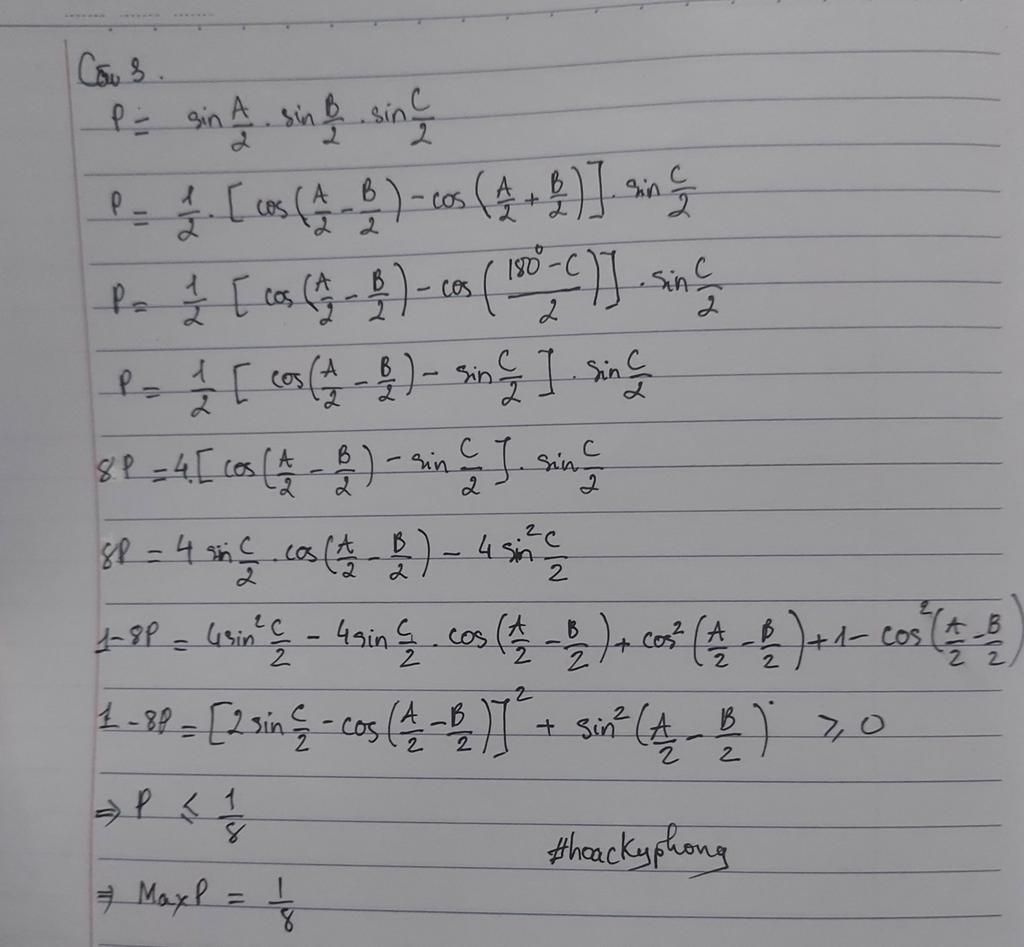 Câu 3.
P = sin A/2 . sin B/2 . sin C/2
P = 1/2 . [ cos(A/2 - B/2) - cos(A/2 + B/2) ] . sin C/2
P = 1/2 [ cos(A/2 - B/2) - cos((180° - C)/2) ] . sin C/2
P = 1/2 [ cos(A/2 - B/2) - sin C/2 ] . sin C/2
8P = 4.[ cos(A/2 - B/2) - sin C/2 ] . sin C/2
8P = 4 sin C/2 . cos(A/2 - B/2) - 4 sin² C/2
1-8P = 4sin² C/2 - 4sin C/2 . cos(A/2 - B/2) + cos²(A/2 - B/2) + 1 - cos²(A/2 - B/2)
1-8P = [2 sin C/2 - cos(A/2 - B/2)]² + sin²(A/2 - B/2) ≥ 0
⇒ P ≤ 1/8
#hoackyphong
⇒ MaxP = 1/8